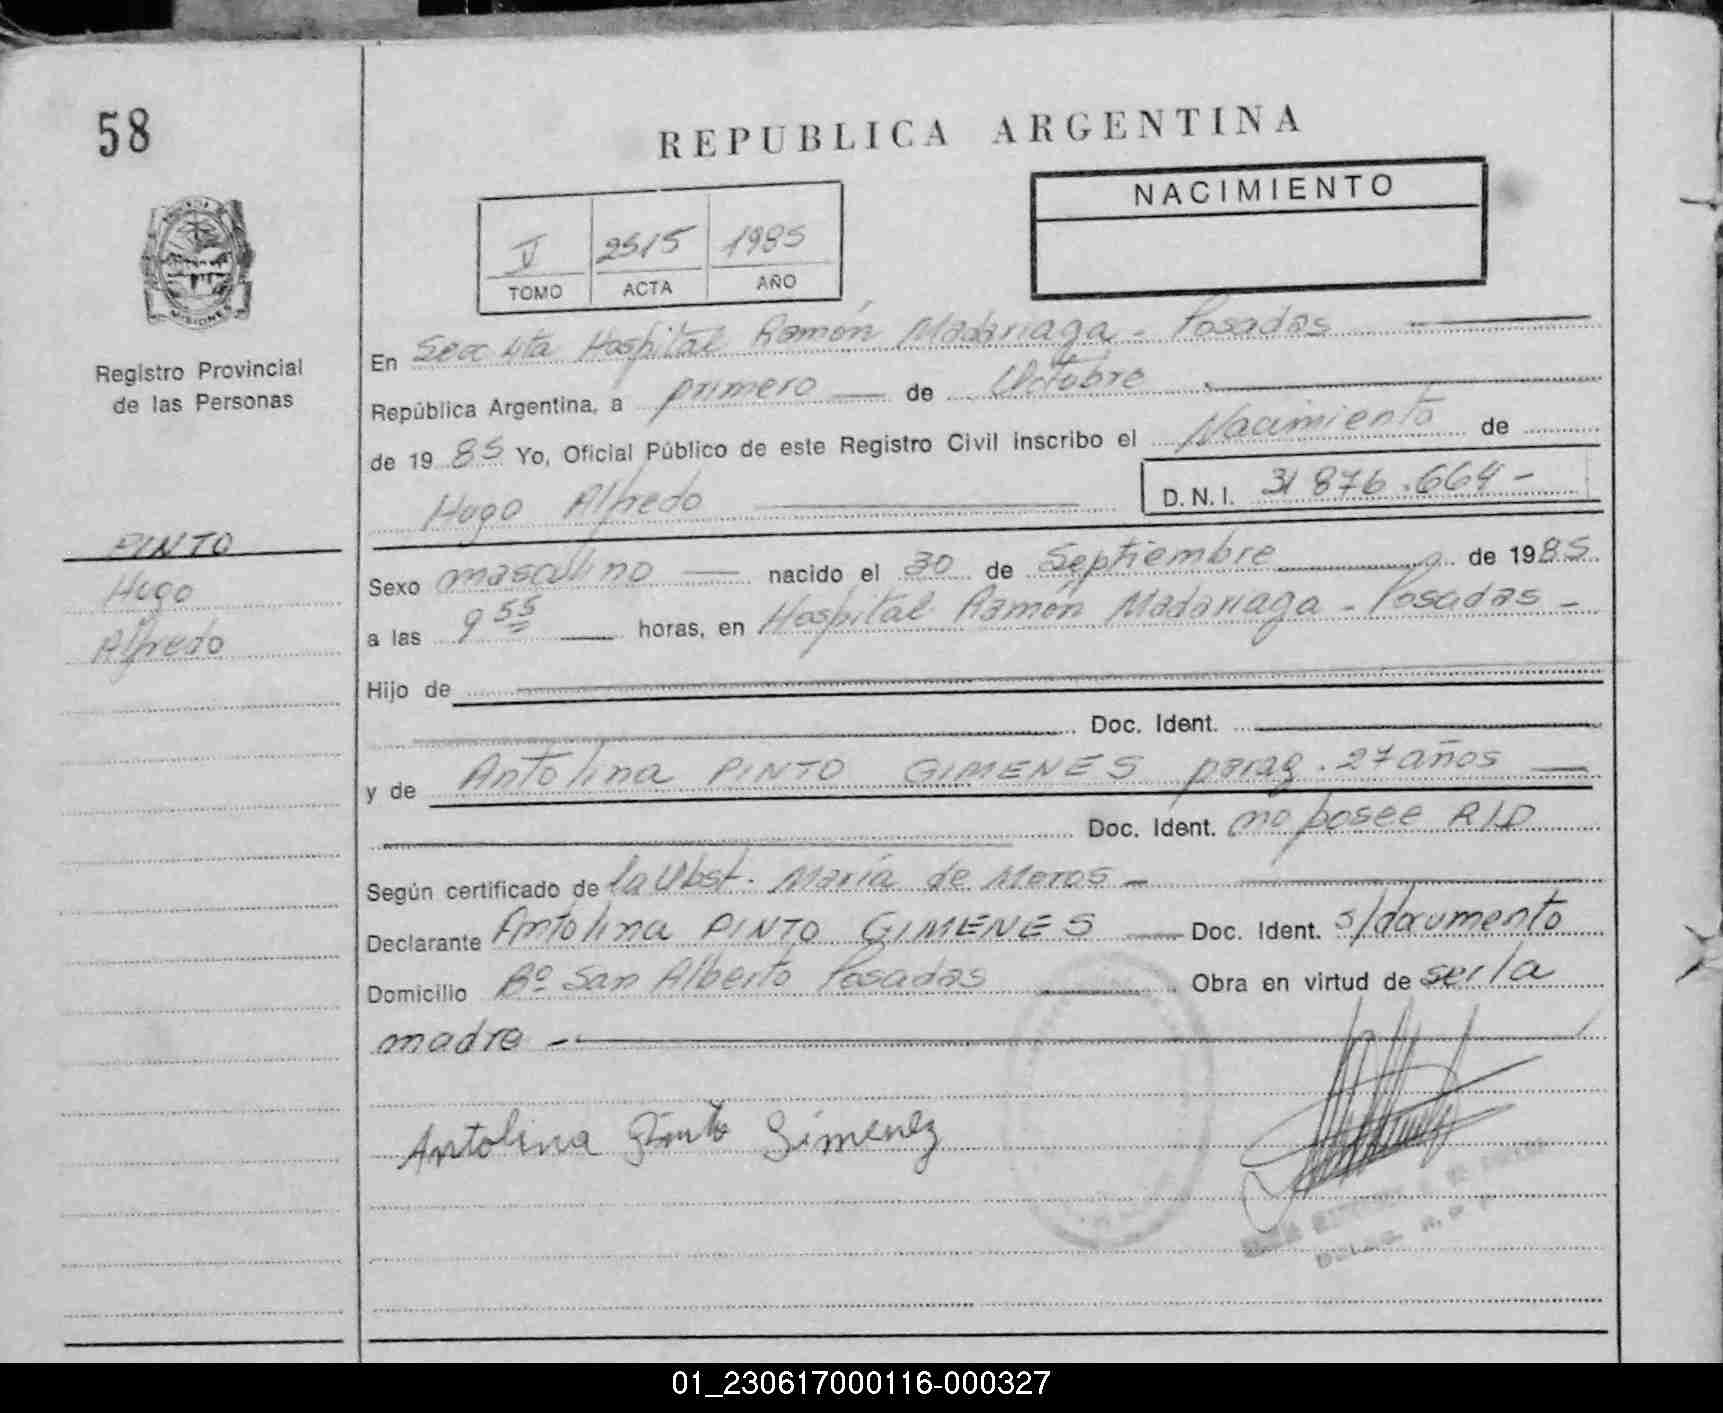 58
REPUBLICA ARGENTINA
NACIMIENTO
V 2515 1985
TOMO ACTA AÑO
MISIONES
Registro Provincial
de las Personas
En Secc 4ta Hospital Ramón Madariaga - Posadas
República Argentina, a primero de Octubre
de 1985 Yo, Oficial Público de este Registro Civil inscribo el Nacimiento de
Hugo Alfredo D.N.I. 31 876.664-
PINTO
Hugo
Alfredo
Sexo masculino nacido el 30 de Septiembre de 1985
a las 9 55 horas, en Hospital Ramón Madariaga - Posadas -
Hijo de
Doc. Ident.
y de Antolina PINTO GIMENES parag. 27 años
Doc. Ident. no posee RID
Según certificado de la Obst. María de Meros -
Declarante Antolina PINTO GIMENES Doc. Ident. s/documento
Domicilio Bº San Alberto Posadas Obra en virtud de ser la
madre -
Antolina Pinto Gimenez
01_230617000116-000327